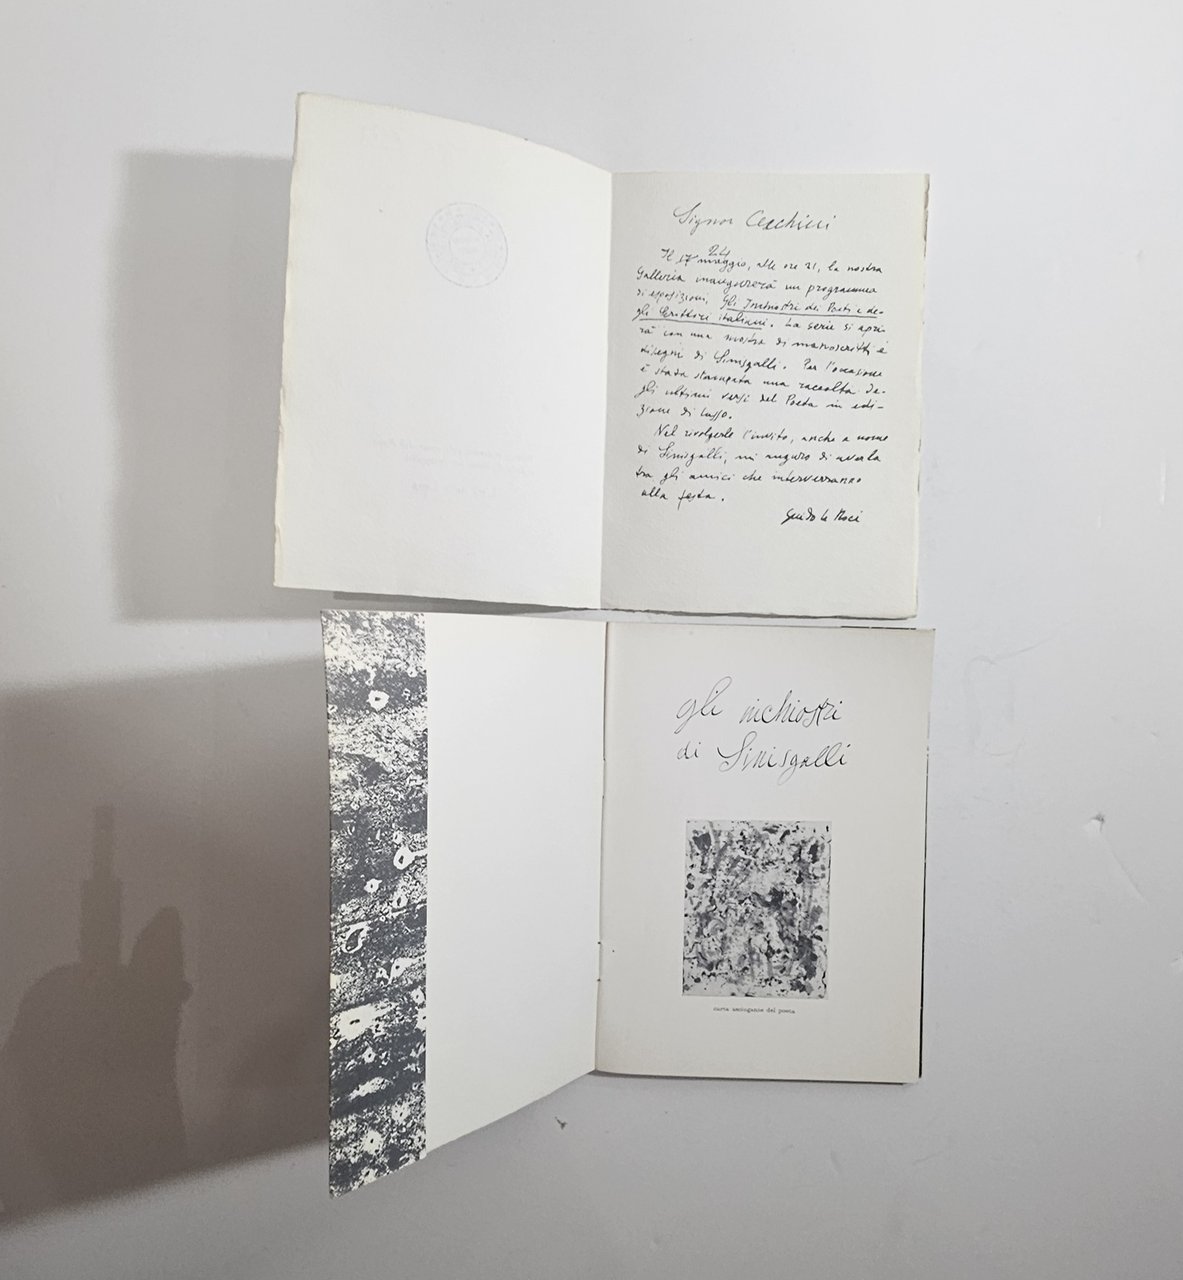 Signor Cecchini
24
Il 17 maggio, alle ore 21, la nostra
Galleria inaugurerà un programma
di esposizioni, Gli Inchiostri dei Poeti e de-
gli Scrittori italiani. La serie si apri-
rà con una mostra di manoscritti e
disegni di Sinisgalli. Per l'occasione
è stata stampata una raccolta de-
gli ultimi versi del Poeta in edi-
zione di lusso.
Nel rivolgerle l'invito, anche a nome
di Sinisgalli, mi auguro di averla
tra gli amici che interverranno
alla festa.
Guido Le Noci
gli inchiostri
di Sinisgalli
carta asciugante del poeta